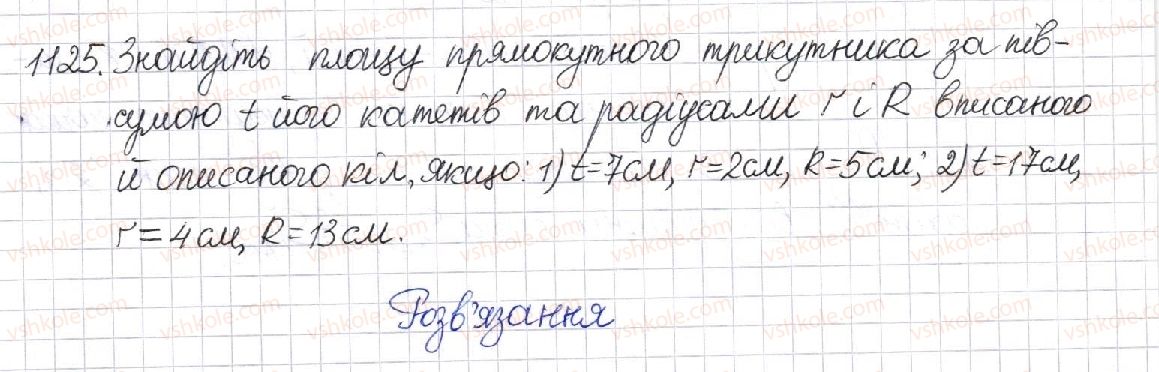 1125. Знайдіть площу прямокутного трикутника за пів-
сумою t його катетів та радіусами r і R вписаного
й описаного кіл, якщо: 1) t=7см, r=2см, R=5см; 2) t=17см,
r=4см, R=13см.
Розв'язання